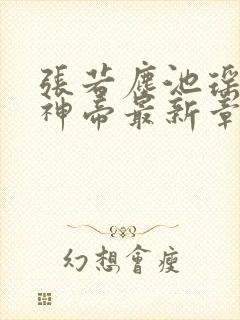 張若塵池瑤
神帝最新章
幻想會瘦